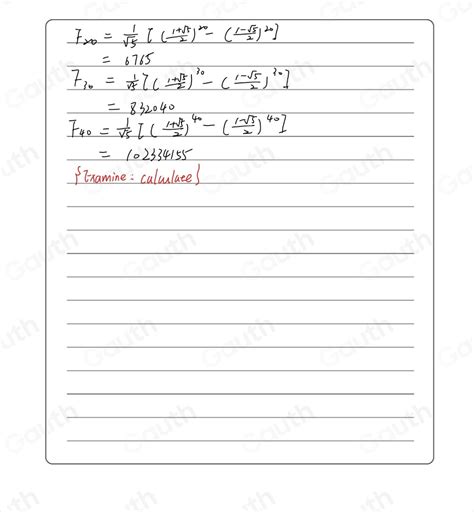 F₂₀ = 1/√5 [ ( (1+√5)/2 )²⁰ - ( (1-√5)/2 )²⁰ ]
= 6765
F₃₀ = 1/√5 [ ( (1+√5)/2 )³⁰ - ( (1-√5)/2 )³⁰ ]
= 832040
F₄₀ = 1/√5 [ ( (1+√5)/2 )⁴⁰ - ( (1-√5)/2 )⁴⁰ ]
= 102334155
{Examine: calculate}
Gauth